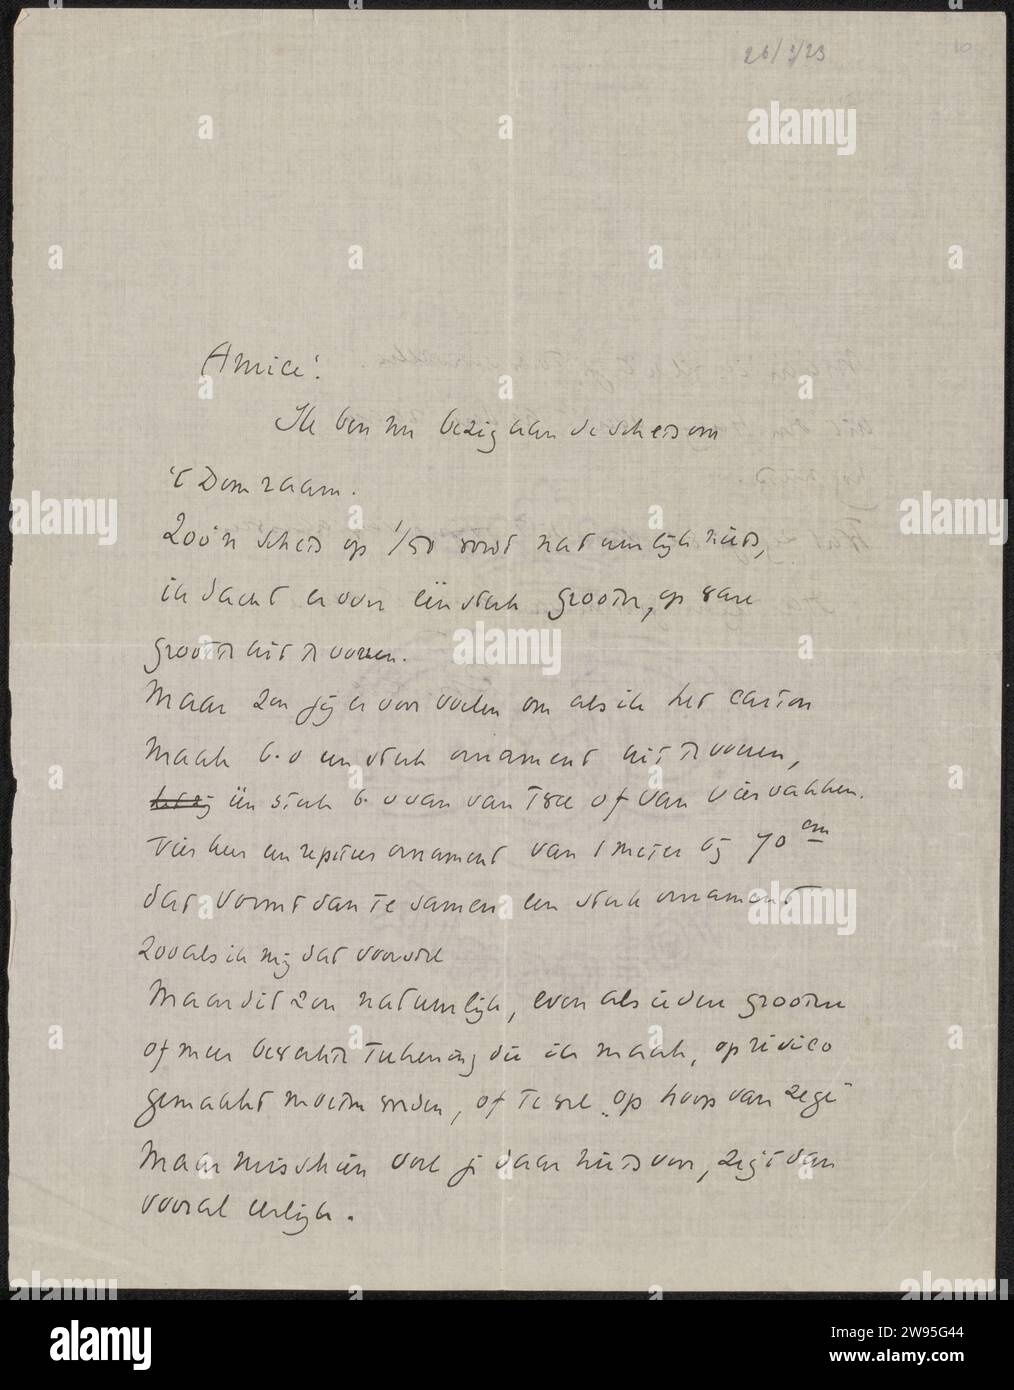 26/3/23
10
Amice!
Ik ben nu bezig aan de schets om
't Dom raam.
Zoo'n schets op 1/50 wordt natuurlijk niets,
ik dacht er voor één stuk grooter, op ware
grootte uit te voeren.
Maar zou jij er voor voelen om als ik het carton
maak b.v een stuk ornament uit te voeren,
één stuk b.v van van twee of van vier vakken.
vier keer een repeteer ornament van 1 meter bij 70 cm
dat vormt dan te samen een stuk ornament
zooals ik mij dat voorstel
Maar dit zou natuurlijk, even als iedere grootere
of meer bewerkte teekening die ik maak, op risico
gemaakt moeten worden, of te wel „op hoop van zege"
Maar misschien voel je daar niets voor, zegt dan
vooral eerlijk.
alamy
alamy
Image ID: 2W95G44
www.alamy.com